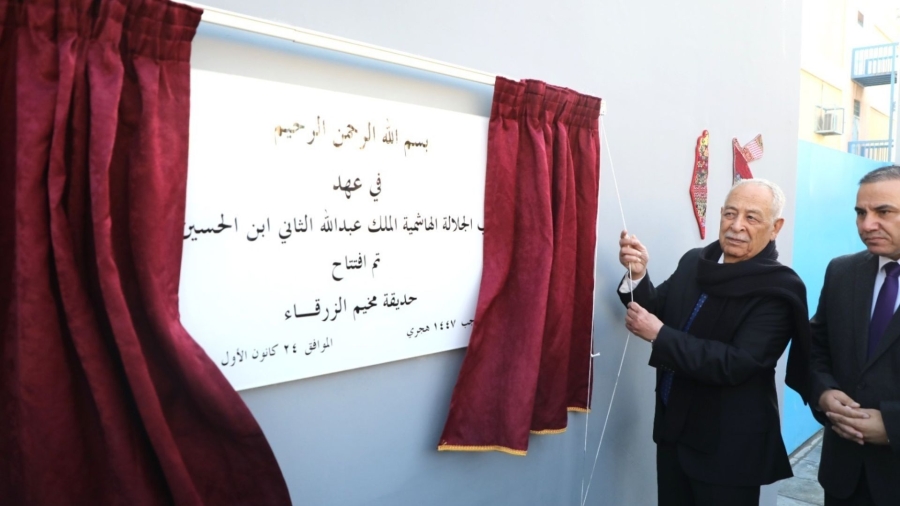 بسم الله الرحمن الرحيم
في عهد
الجلالة الهاشمية الملك عبدالله الثاني ابن الحسين
تم افتتاح
حديقة مخيم الزرقاء
١٤٤٧ هجري
الموافق ٢٤ كانون الأول